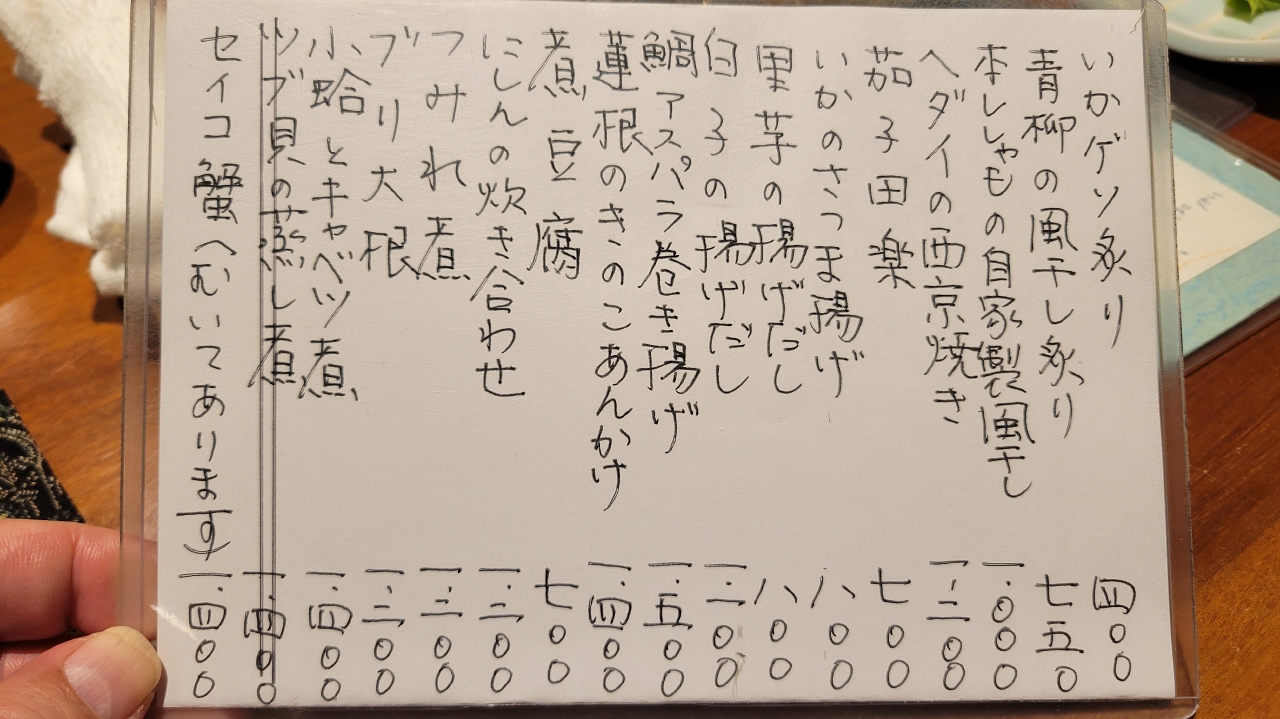 いかゲソ炙り 四〇〇
青柳の風干し炙り 七五〇
本ししゃもの自家製風干し 一.〇〇〇
ヘダイの西京焼き 一.二〇〇
茄子田楽 七〇〇
いかのさつま揚げ 八〇〇
里芋の揚げだし 八〇〇
白子の揚げだし 一.二〇〇
鯛アスパラ巻き揚げ 一.五〇〇
蓮根のきのこあんかけ 一.四〇〇
煮豆腐 七〇〇
にしんの炊き合わせ 一.二〇〇
つみれ煮 一.二〇〇
ブリ大根 一.三〇〇
小蛤とキャベツ煮 一.四〇〇
ツブ貝の蒸し煮 一.四〇〇
セイコ蟹へむいてあります) 一.四〇〇